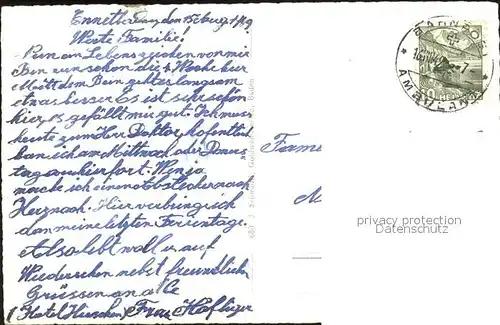 Werte Familie!
Nun an Lebenszeichen von mir
Bin nun schon die 4. Woche hier
Mit dem Bein geht es langsam
etwas besser Es ist sehr schön
hier, es gefällt mir gut. Ich muss
heute zum Herr Doktor, hofentlich
kan ich am Mittwoch oder Doners
tag an hier fort. Wen ja
mache ich einen abstecher nach
Herznach. Hier verbring ich
dan meine letzten Ferientage.
Also lebt wohl u. auf
Wiedersehen nebst freundlich
Grüssen an alle
(Hotel Hirschen) Frau Häfliger
Fam
privacy protection
Datenschutz